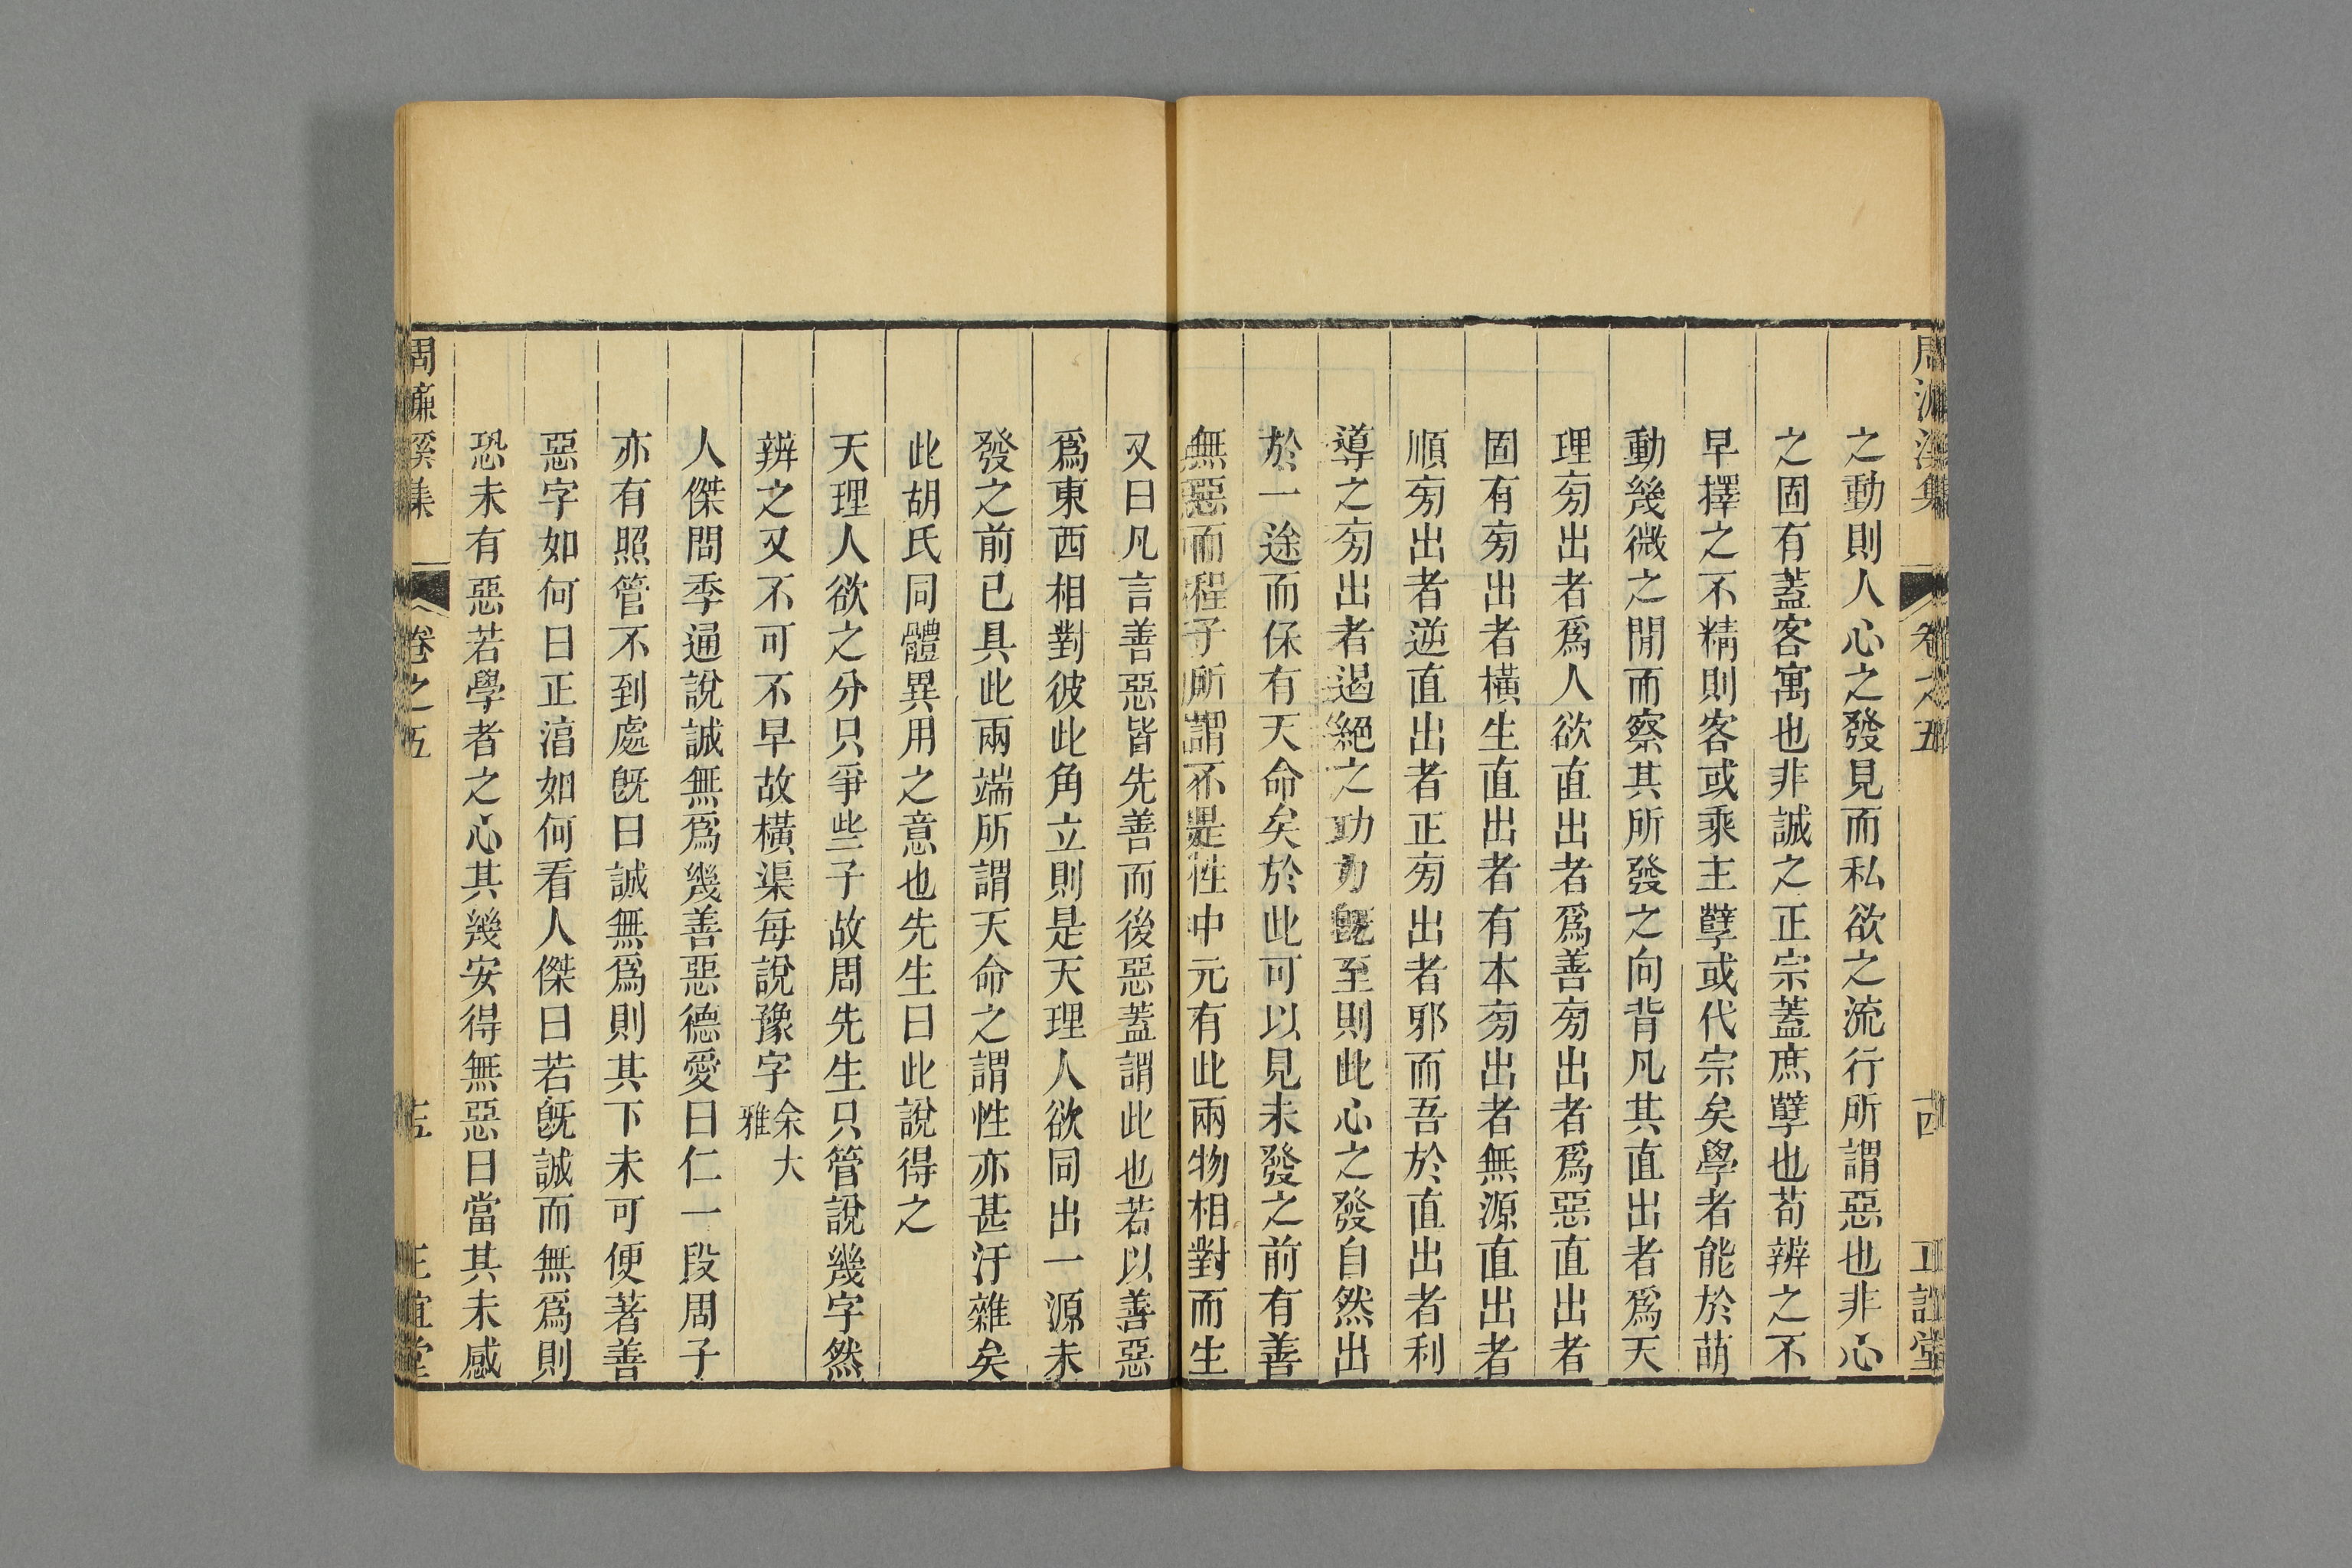 周濂溪集
卷之五
十四
正誼堂
之動則人心之發見而私欲之流行所謂惡也非心
之固有蓋客寓也非誠之正宗蓋庶孽也苟辨之不
早擇之不精則客或乘主孽或代宗矣學者能於萌
動幾微之閒而察其所發之向背凡其直出者爲天
理旁出者爲人欲直出者爲善旁出者爲惡直出者
固有旁出者橫生直出者有本旁出者無源直出者
順旁出者逆直出者正旁出者邪而吾於直出者利
導之旁出者遏絕之功力旣至則此心之發自然出
於一途而保有天命矣於此可以見未發之前有善
無惡而程子所謂不是性中元有此兩物相對而生
又曰凡言善惡皆先善而後惡蓋謂此也若以善惡
爲東西相對彼此角立則是天理人欲同出一源未
發之前已具此兩端所謂天命之謂性亦甚汙雜矣
此胡氏同體異用之意也先生曰此說得之
天理人欲之分只爭些子故周先生只管說幾字然
辨之又不可不早故橫渠每說豫字余大雅
人傑問季通說誠無爲幾善惡德愛曰仁一段周子
亦有照管不到處旣曰誠無爲則其下未可便著善
惡字如何曰正湻如何看人傑曰若旣誠而無爲則
恐未有惡若學者之心其幾安得無惡曰當其未感
周濂溪集
卷之五
十五
正誼堂